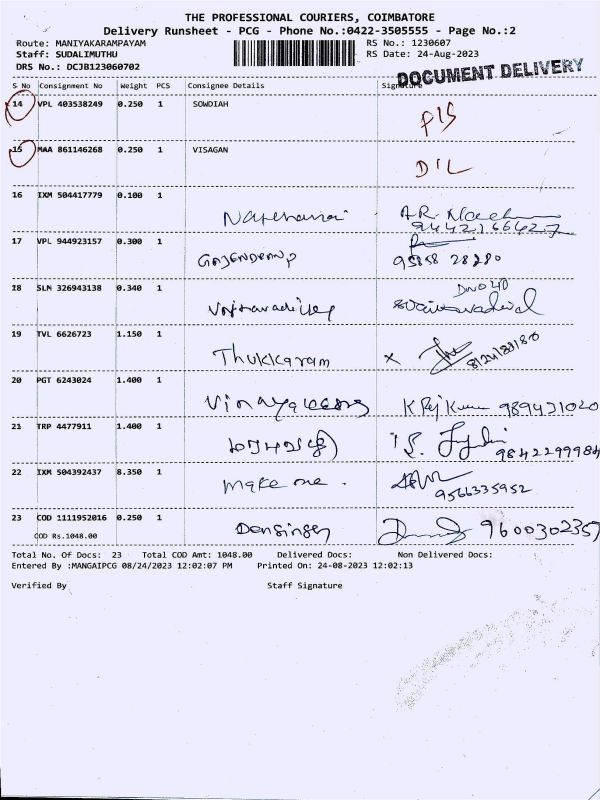 THE PROFESSIONAL COURIERS, COIMBATORE
Delivery Runsheet - PCG - Phone No.:0422-3505555 - Page No.:2
Route: MANIYAKARAMPAYAM RS No.: 1230607
Staff: SUDALIMUTHU RS Date: 24-Aug-2023
DRS No.: DCJB123060702
DOCUMENT DELIVERY
S No Consignment No Weight PCS Consignee Details Signature
14 VPL 403538249 0.250 1 SOWDIAH P/S
15 MAA 861146268 0.250 1 VISAGAN D/L
16 IXM 504417779 0.100 1
9442166427
17 VPL 944923157 0.300 1
95858 28280
18 SLN 326943138 0.340 1 DNO 40
19 TVL 6626723 1.150 1 Thukkaram x
20 PGT 6243024 1.400 1 989431020
21 TRP 4477911 1.400 1 9842299984
22 IXM 504392437 8.350 1 make me.
9566335952
23 COD 1111952016 0.250 1 Densingh 9600302357
COD Rs.1048.00
Total No. Of Docs: 23 Total COD Amt: 1048.00 Delivered Docs: Non Delivered Docs:
Entered By :MANGAIPCG 08/24/2023 12:02:07 PM Printed On: 24-08-2023 12:02:13
Verified By Staff Signature